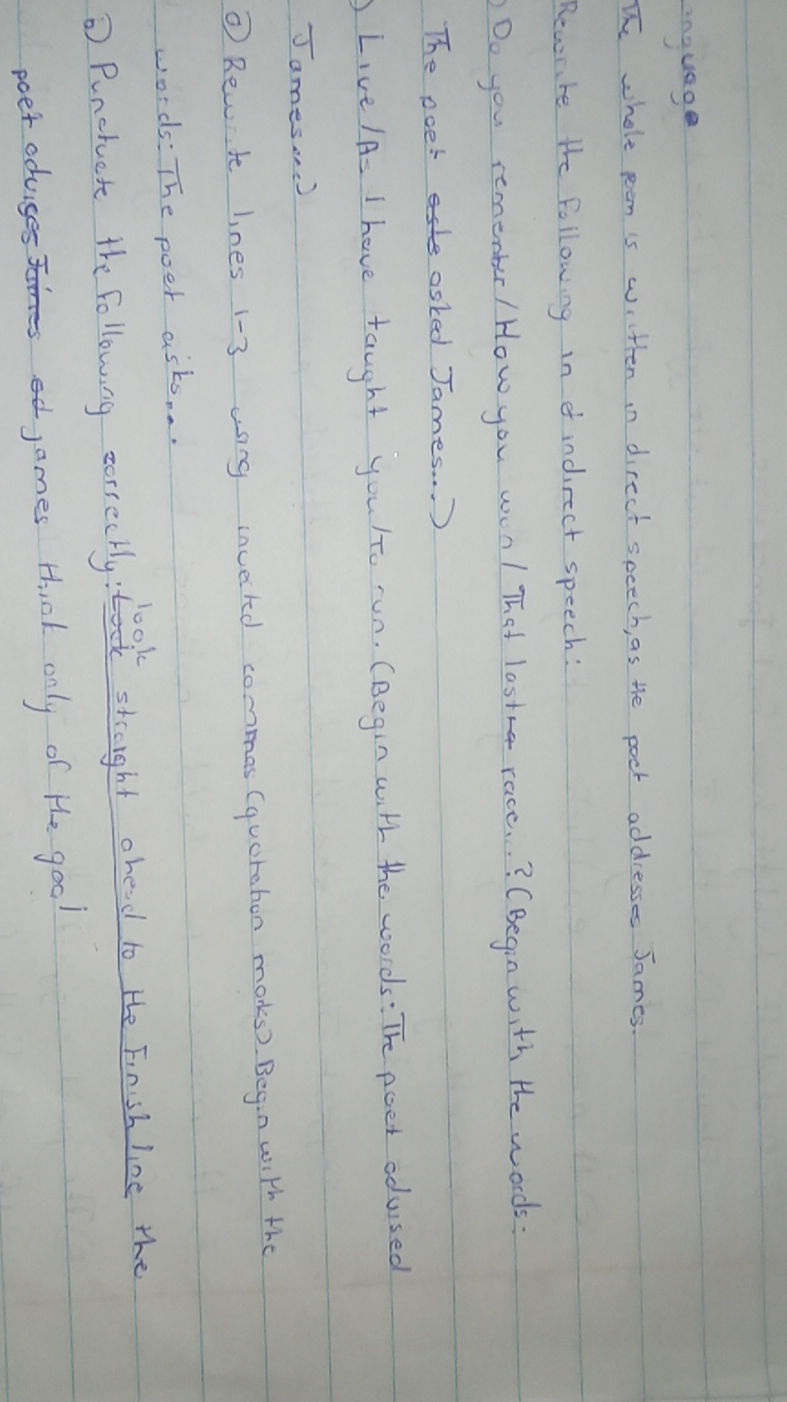 anguage
The whole poem is written in direct speech, as the poet addresses James.
Rewrite the following in indirect speech:
) Do you remember/How you won/That last race...? (Begin with the words:
The poet asked James...)
) Live/As I have taught you/To run. (Begin with the words: The poet advised
James...)
a) Rewrite lines 1-3 using inverted commas (quotation marks). Begin with the
words: The poet asks...
b) Punctuate the following correctly: look straight ahead to the finish line the
poet advises james think only of the goal